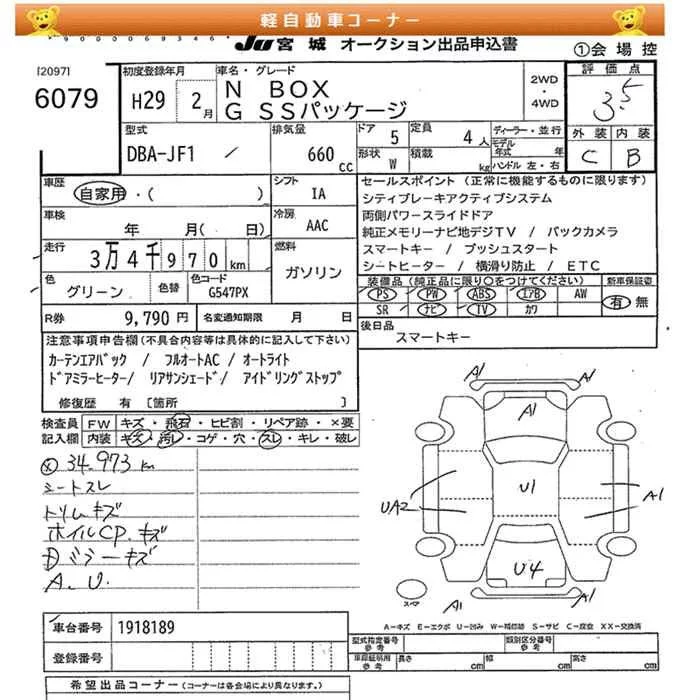 軽自動車コーナー
JU 宮城 オークション出品申込書
①会場控
[2097]
6079
初度登録年月
H29 2月
車名・グレード
N BOX
G SSパッケージ
2WD
・
4WD
評価点
3.5
外装 内装
C B
型式
DBA-JF1
排気量
660 cc
ドア 5
定員 4人
ディーラー・並行
モデル年式 年
形状 W
積載 kg
ハンドル 左・右
車歴
自家用・( )
シフト
IA
車検
年 月( 日)
冷房
AAC
走行
3万4千970km
燃料
ガソリン
色
グリーン
色替
色コード
G547PX
R券 9,790円
名変通知期限 月 日
セールスポイント (正常に機能するものに限ります)
シティブレーキアクティブシステム
両側パワースライドドア
純正メモリーナビ地デジTV / バックカメラ
スマートキー / プッシュスタート
シートヒーター / 横滑り防止 / ETC
装備品(純正品に限り○をつけてください)
新車保証書
PS PW ABS エアB AW
SR ナビ TV カワ
有 無
後日品
スマートキー
注意事項申告欄(不具合内容等は具体的に記入して下さい)
カーテンエアバック / フルオートAC / オートライト
ドアミラーヒーター/ リアサンシェード/ アイドリングストップ
修復歴 有 [箇所 ]
検査員記入欄
FW キズ・飛石・ヒビ割・リペア跡・×要
内装 キズ・汚レ・コゲ・穴・スレ・キレ・破レ
34.973km
シートスレ
トリムキズ
ホイルCP.キズ
Dミラーキズ
A.U.
A1 A1
A1
UA2 U1 A1
U4
A1 A1
スペア
A-キズ E-エクボ U-凹み W-補修跡 S-サビ C-腐食 XX-交換済
車台番号 1918189
登録番号
型式指定番号 参考
類別区分番号 参考
車庫証明用 参考 長さ cm 幅 cm 高さ cm
希望出品コーナー(コーナーは各会場により異なります。)